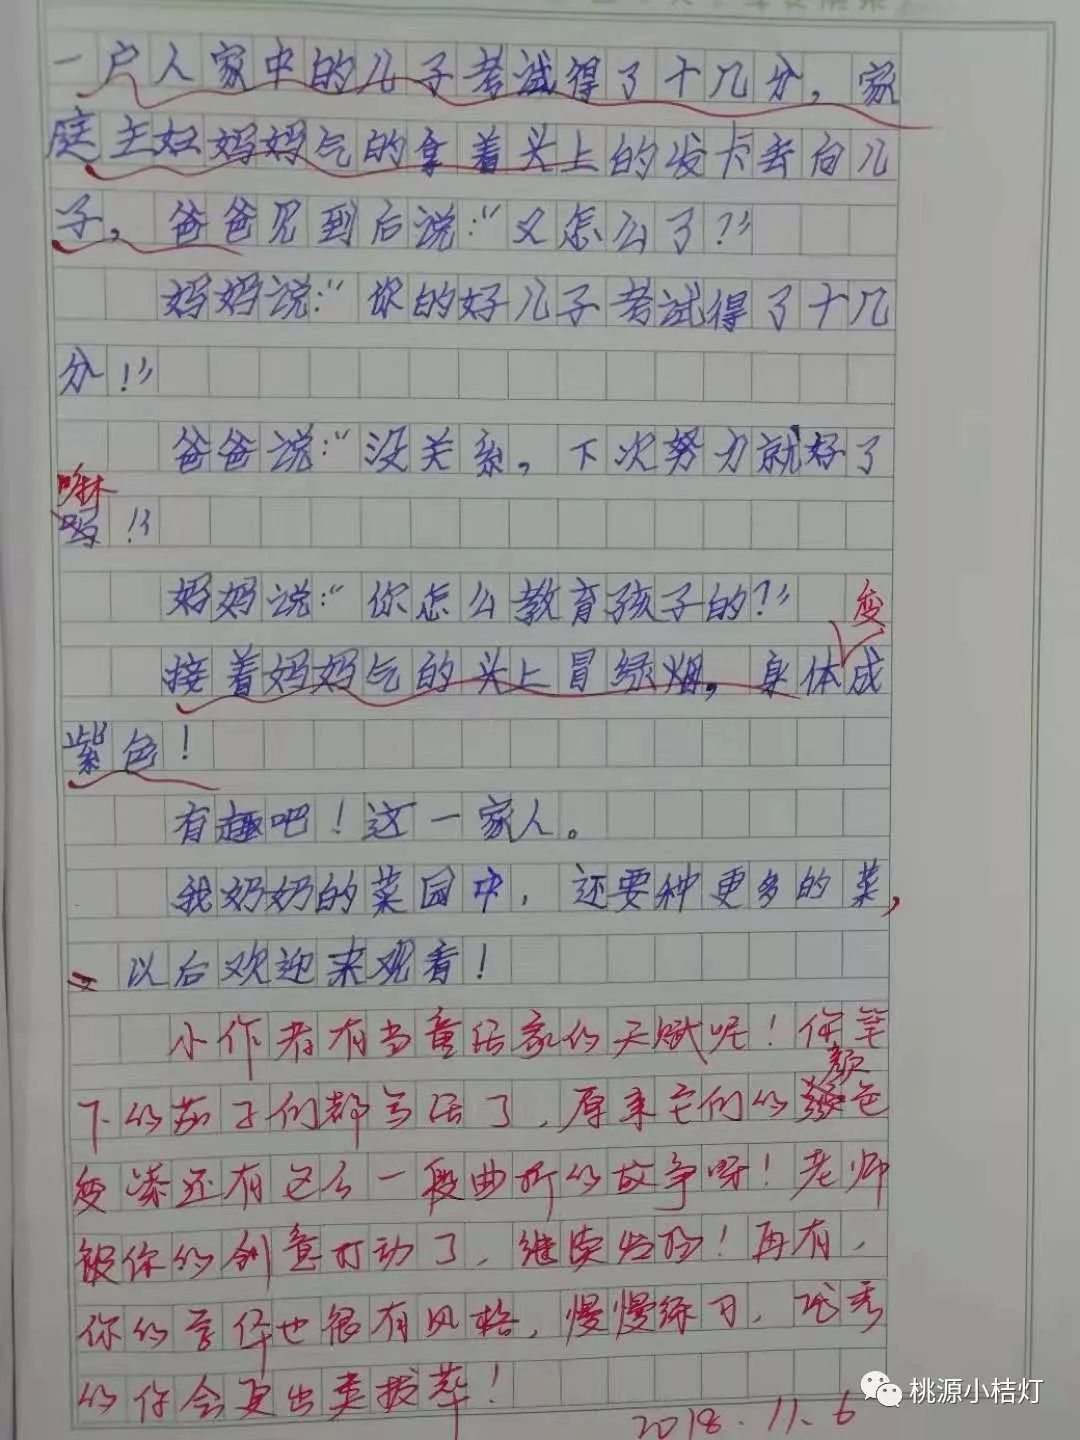 一户人家中的儿子考试得了十几分，家
庭主妇妈妈气的拿着头上的发卡去向儿
子，爸爸见到后说：“又怎么了？”
妈妈说：“你的好儿子考试得了十几
分！”
爸爸说：“没关系，下次努力就好了
嘛
吗！”
妈妈说：“你怎么教育孩子的？”
变
接着妈妈气的头上冒绿烟，身体成
紫色！
有趣吧！这一家人。
我奶奶的菜园中，还要种更多的菜，
以后欢迎来观看！
小作者有当童话家的天赋呢！你笔
颜
下的茄子们都写活了，原来它们的色
变漆还有这么一段曲折的故事呀！老师
被你的创意打动了，继续加油！再有，
你的字体也很有风格，慢慢练习，优秀
的你会更出类拔萃！
2018.11.6
桃源小桔灯